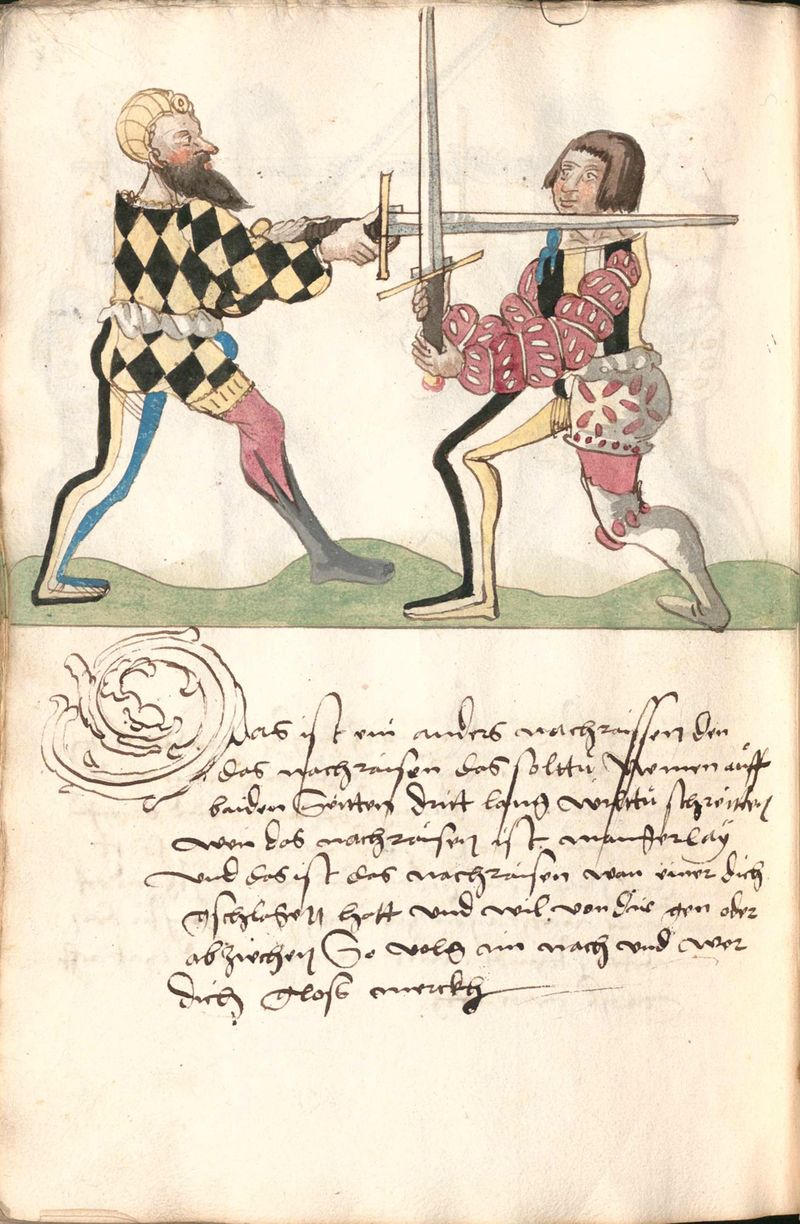 Das ist ein anders nachraissen den
das nachraisen das solttu nemen auff
baiden seitten dritt lang wilttu schreitten
wen das nachraisen ist manicherlay
und das ist das nachraisen wan einer dich
gschlagen hatt und wil von dir gen oder
abziechen So volg im nach und wer
dich glosß merckh